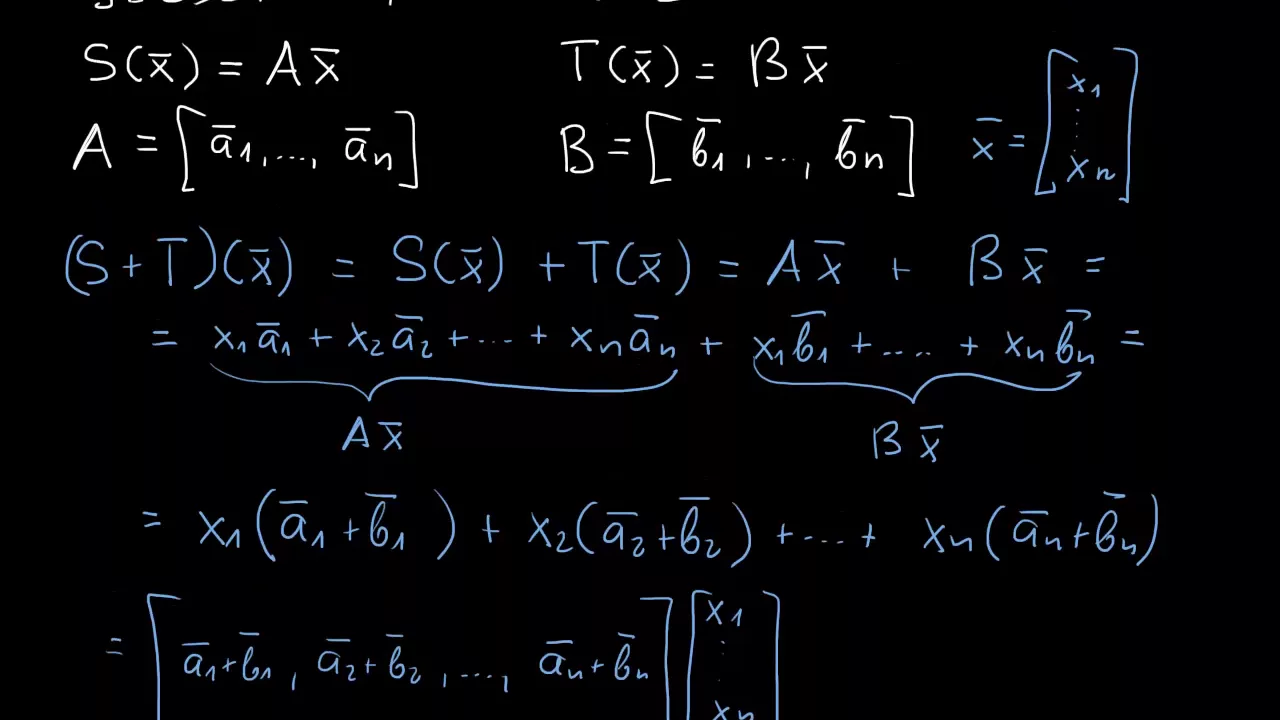 S(x̄) = A x̄ T(x̄) = B x̄
A = [ā₁, ..., āₙ] B = [b̄₁, ..., b̄ₙ] x̄ = [x₁ ⋮ xₙ]
(S + T)(x̄) = S(x̄) + T(x̄) = A x̄ + B x̄ =
= x₁ā₁ + x₂ā₂ + ... + xₙāₙ + x₁b̄₁ + .... + xₙb̄ₙ =
A x̄ B x̄
= x₁(ā₁ + b̄₁) + x₂(ā₂ + b̄₂) + ... + xₙ(āₙ + b̄ₙ)
= [ā₁ + b̄₁, ā₂ + b̄₂, ..., āₙ + b̄ₙ] [x₁ ⋮ xₙ]